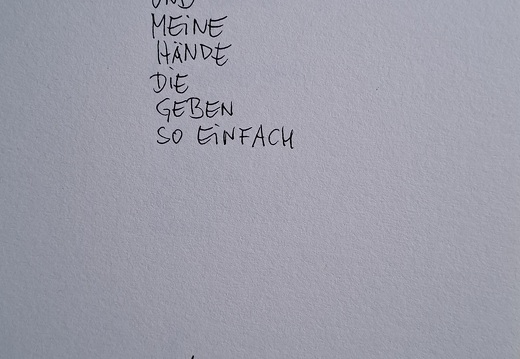 UND
MEINE
HÄNDE
DIE
GEBEN
SO EINFACH